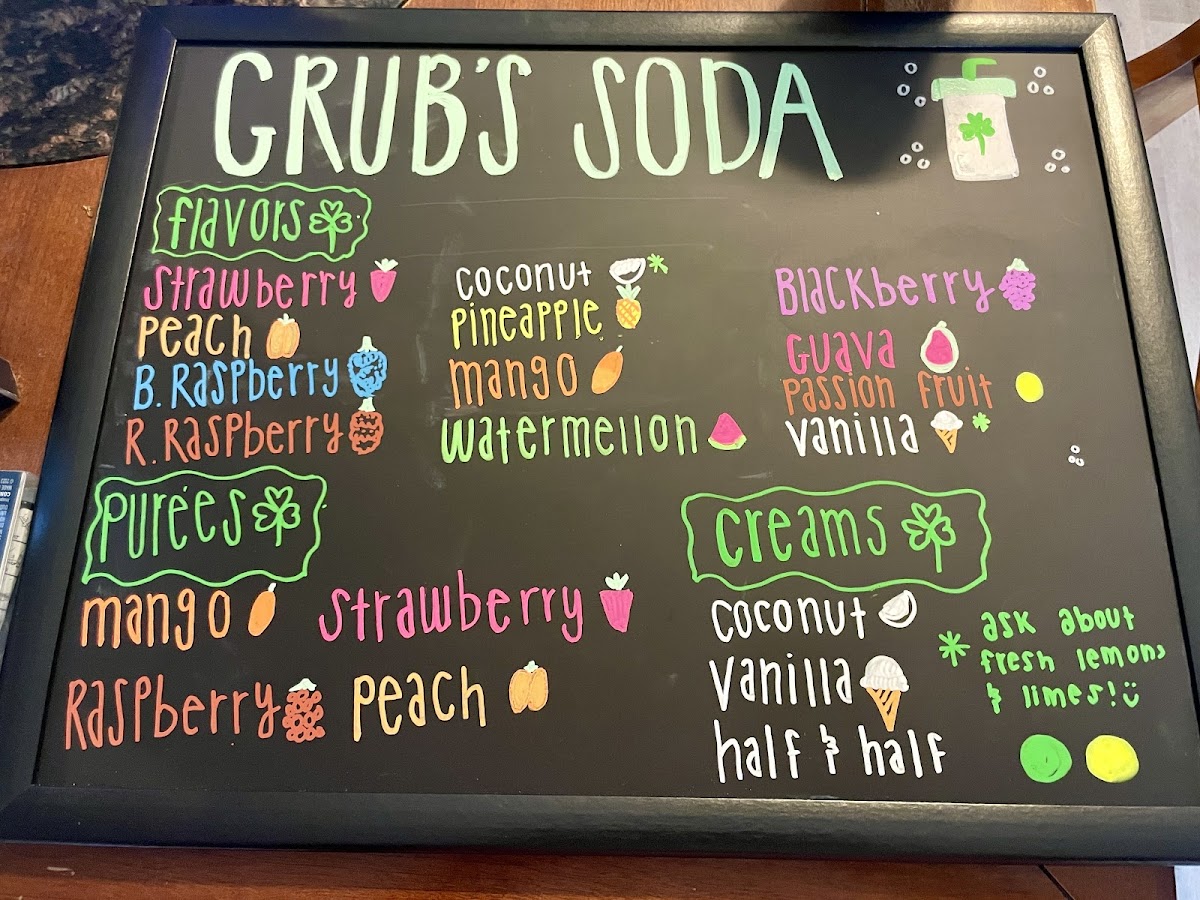 GRUB'S SODA
flavors
Strawberry
Peach
B. Raspberry
R. Raspberry
coconut *
Pineapple
mango
watermellon
Blackberry
Guava
Passion fruit
vanilla *
purées
mango
Strawberry
Raspberry
Peach
creams
coconut
vanilla
half & half
* ask about
fresh lemons
& limes! :)